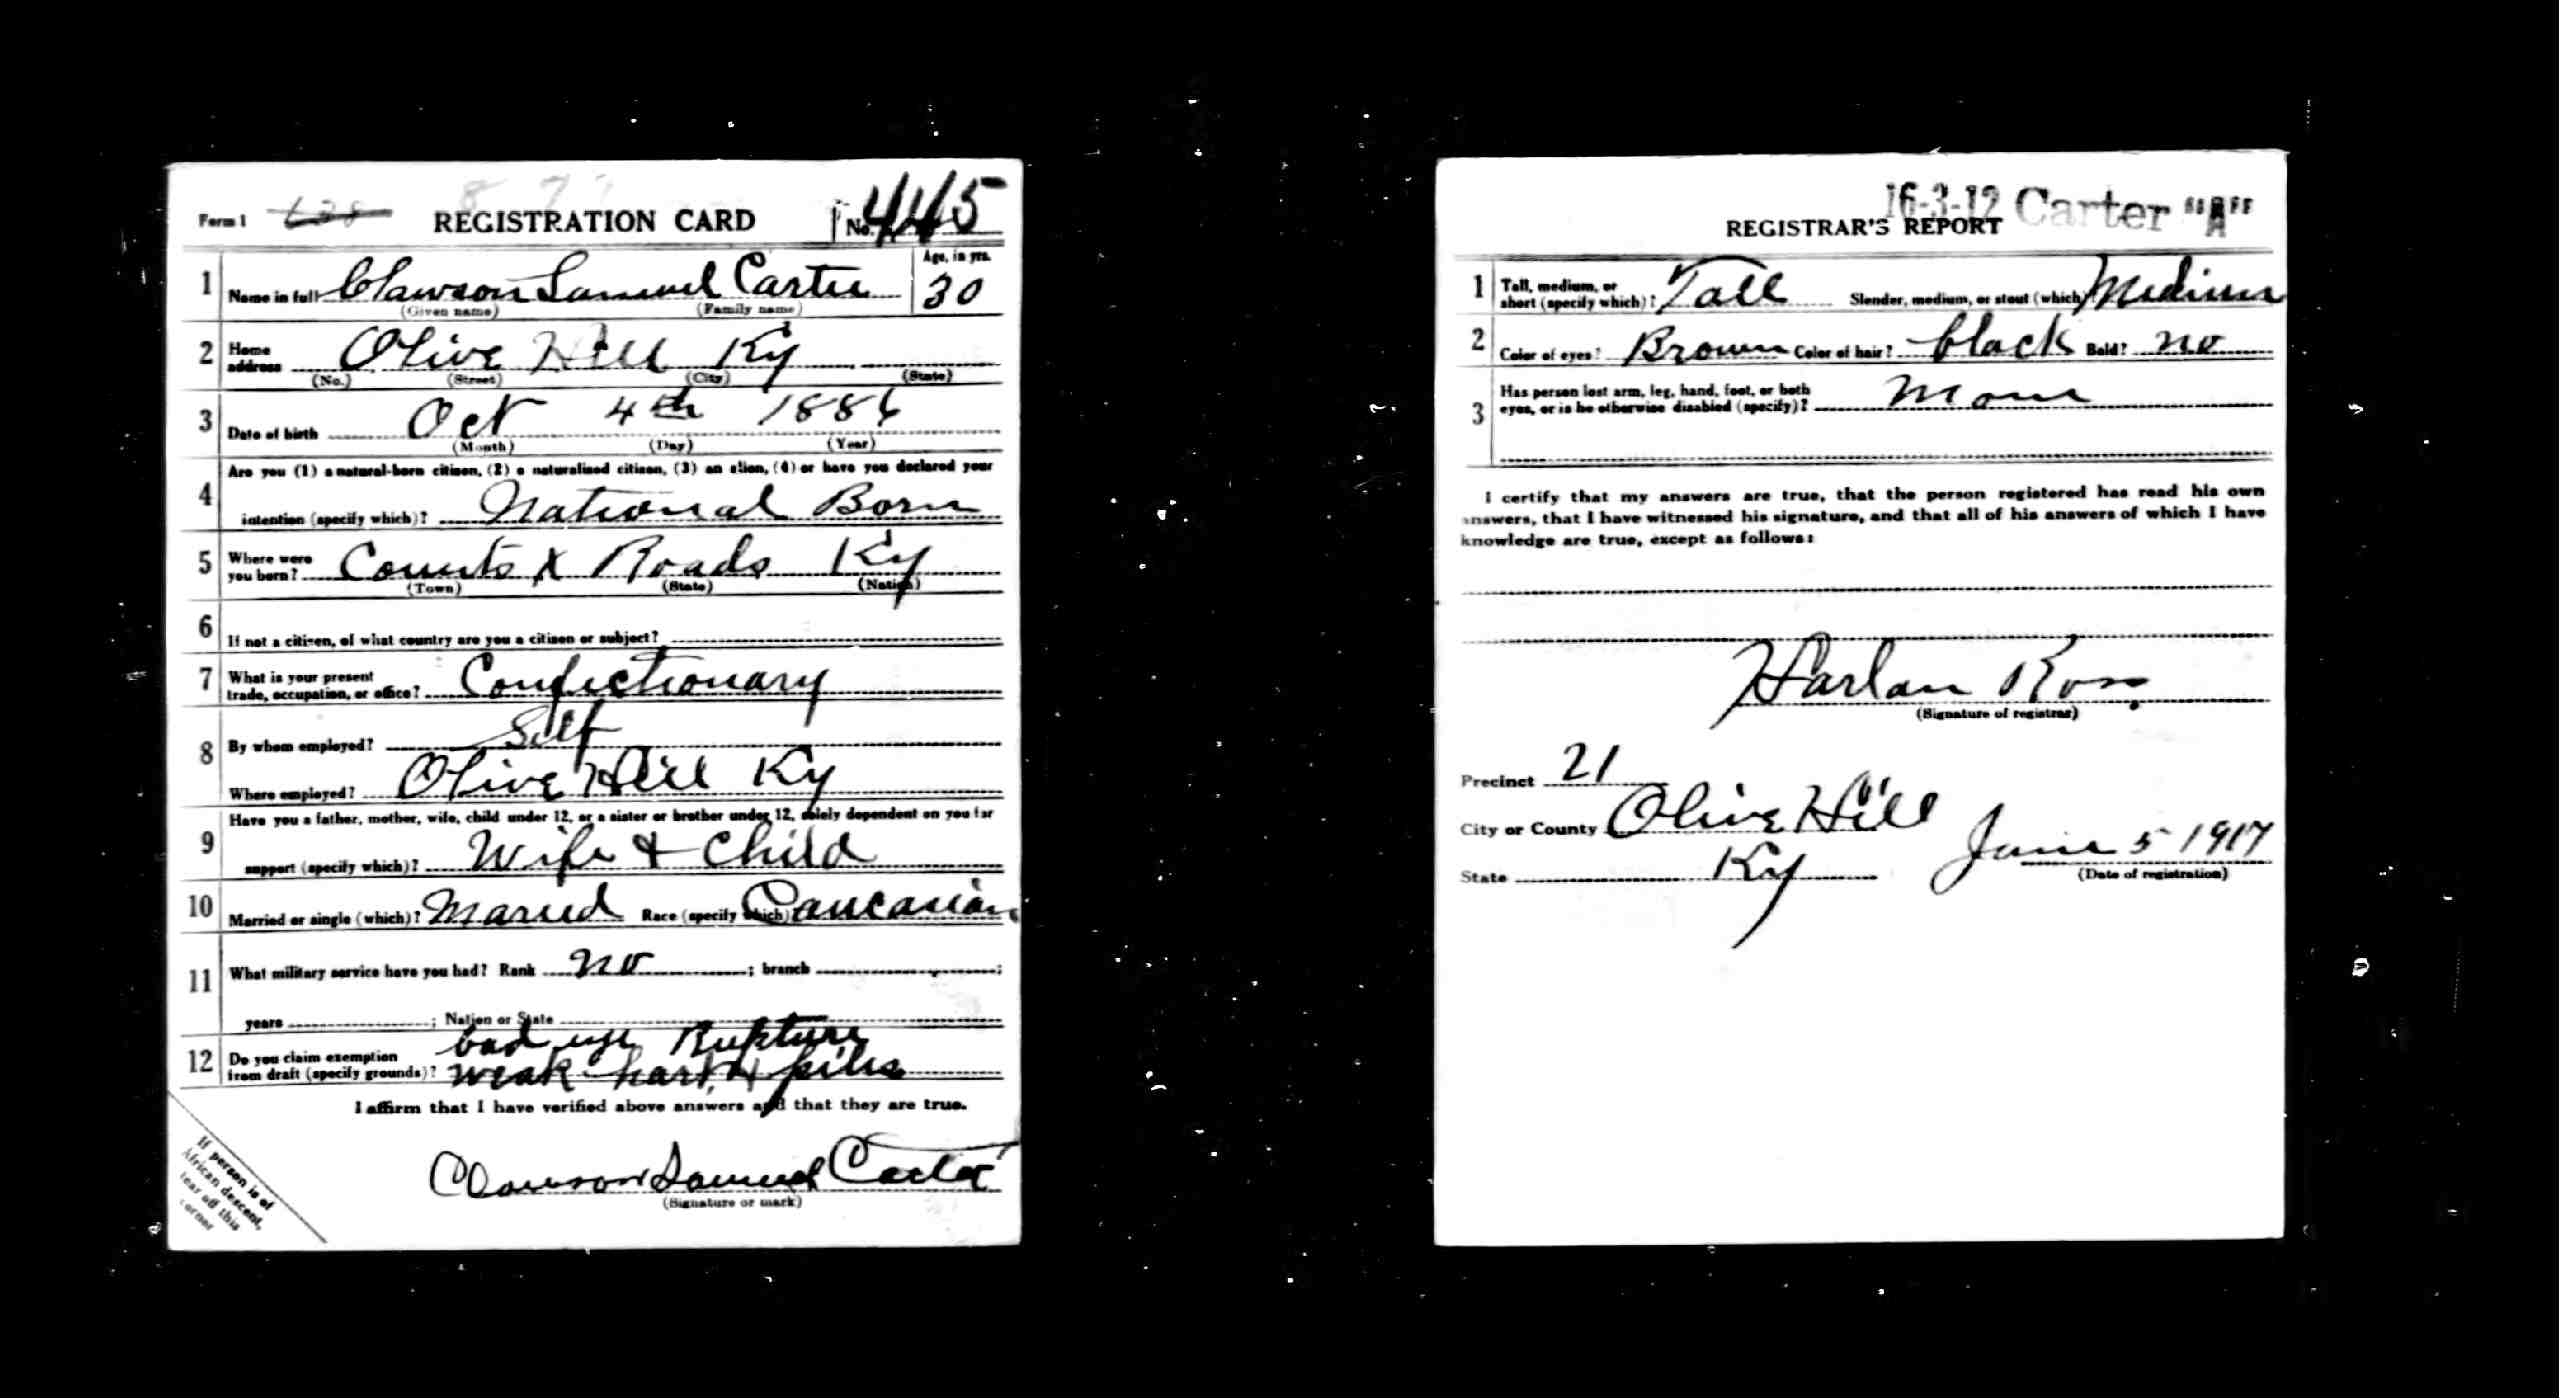 Form 1 638 REGISTRATION CARD No. 445
1 Name in full Clawson Samuel Carter Age, in yrs. 30
(Given name) (Family name)
2 Home address Olive Hill Ky
(No.) (Street) (City) (State)
3 Date of birth Oct 4th 1886
(Month) (Day) (Year)
4 Are you (1) a natural-born citizen, (2) a naturalized citizen, (3) an alien, (4) or have you declared your
intention (specify which)? National Born
5 Where were you born? Counts X Roads Ky
(Town) (State) (Nation)
6 If not a citizen, of what country are you a citizen or subject?
7 What is your present trade, occupation, or office? Confectionary
8 By whom employed? Self
Where employed? Olive Hill Ky
9 Have you a father, mother, wife, child under 12, or a sister or brother under 12, solely dependent on you for
support (specify which)? Wife & Child
10 Married or single (which)? Maried Race (specify which)? Caucasian
11 What military service have you had? Rank no ; branch ;
years ; Nation or State
12 Do you claim exemption from draft (specify grounds)? bad eye Rupture
weak hart & piles
I affirm that I have verified above answers and that they are true.
Clawson Samuel Carter
(Signature or mark)
If person is of
African descent,
tear off this
corner
16-3-12 Carter "A"
REGISTRAR'S REPORT
1 Tall, medium, or short (specify which)? Tall Slender, medium, or stout (which)? Medium
2 Color of eyes? Brown Color of hair? black Bald? no
3 Has person lost arm, leg, hand, foot, or both
eyes, or is he otherwise disabled (specify)? None
I certify that my answers are true, that the person registered has read his own
answers, that I have witnessed his signature, and that all of his answers of which I have
knowledge are true, except as follows:
Harlan Ross
(Signature of registrar)
Precinct 21
City or County Olive Hill
State Ky June 5 1917
(Date of registration)